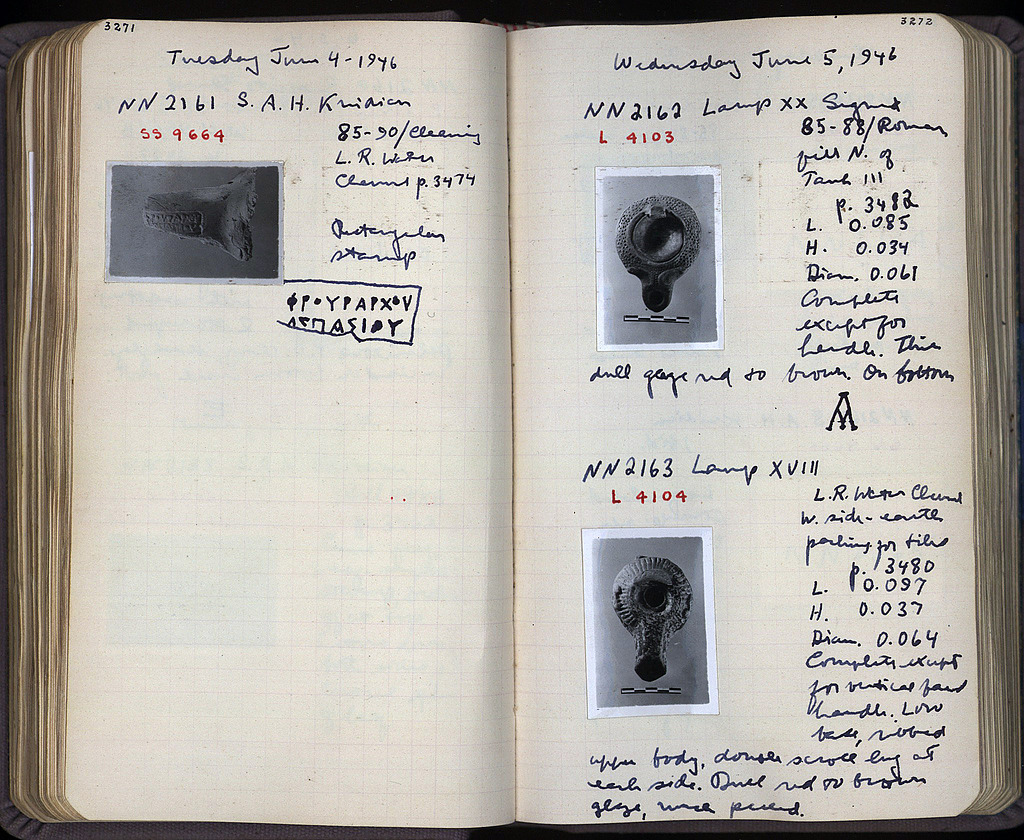 3271
Tuesday June 4-1946
NN 2161 S. A. H. Knidian
SS 9664
85-90/Cleaning
L. R. Water
Channel p. 3474
Rectangular
stamp
ΦΡΟΥΡΑΡΧΟΥ
ΑΓΠΑΣΙΟΥ
3272
Wednesday June 5, 1946
NN2162 Lamp XX Signed
L 4103
85-88/Roman
fill N. of
Tank III
p. 3482
L. 0.085
H. 0.034
Diam. 0.061
Complete
except for
handle. Thin
dull glaze red to brown. On bottom
Α
NN2163 Lamp XVIII
L 4104
L.R. Water Channel
W. side-earth
packing for tiles
p. 3480
L. 0.097
H. 0.037
Diam. 0.064
Complete except
for vertical band
handle. Low
base, ribbed
upper body, double scroll lug at
each side. Dull red to brown
glaze, much peeled.